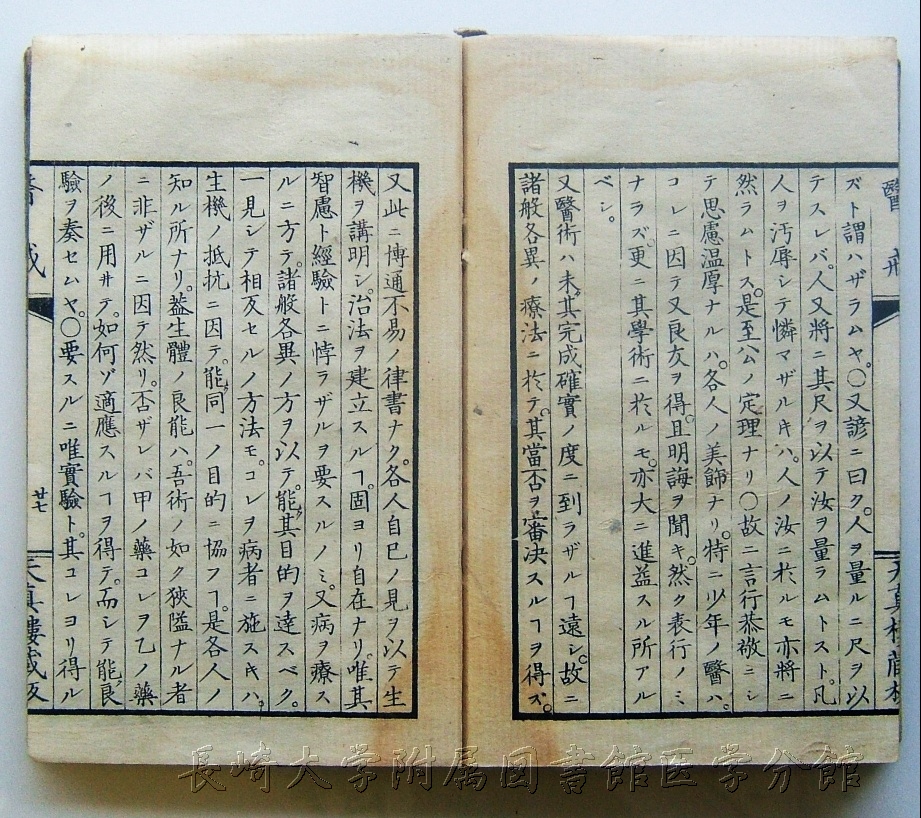 醫戒
ズト謂ハザラムヤ。〇又諺ニ曰ク。人ヲ量ルニ尺ヲ以
テスレバ。人又將ニ其尺ヲ以テ汝ヲ量ラムトスト。凡
人ヲ汚辱シテ憐マザルキハ。人ノ汝ニ於ルモ亦將ニ
然ラムトス。是至公ノ定理ナリ〇故ニ言行恭敬ニシ
テ思慮温厚ナルハ。各人ノ美飾ナリ。特ニ少年ノ醫ハ。
コレニ因テ又良友ヲ得。且明誨ヲ聞キ。然ク表行ノミ
ナラズ。更ニ其學術ニ於ルモ。亦大ニ進益スル所アル
ベシ。
又醫術ハ未。其完成確實ノ度ニ到ラザルヿ遠シ。故ニ
諸般各異ノ療法ニ於テ。其當否ヲ審决スルヿヲ得ズ。
天真樓藏板
又此ニ博通不易ノ律書ナク。各人自己ノ見ヲ以テ生
機ヲ講明シ。治法ヲ建立スルヿ。固ヨリ自在ナリ。唯其
智慮ト經驗トニ悖ラザルヲ要スルノミ。又病ヲ療ス
ルニ方テ。諸般各異ノ方ヲ以テ。能其目的ヲ達スベク。
一見シテ相反セルノ方法モ。コレヲ病者ニ施スキハ。
生機ノ抵抗ニ因テ。能同一ノ目的ニ協フヿ。是各人ノ
知ル所ナリ。葢生體ノ良能ハ。吾術ノ如ク狹隘ナル者
ニ非ザルニ因テ然リ。否ザレバ甲ノ藥コレヲ乙ノ藥
ノ後ニ用井テ。如何ゾ適應スルヿヲ得テ。而シテ能良
驗ヲ奏セムヤ。〇要スルニ唯實驗ト。其コレヨリ得ル
醫戒
廿七
天真樓藏板
長崎大学附属図書館医学分館